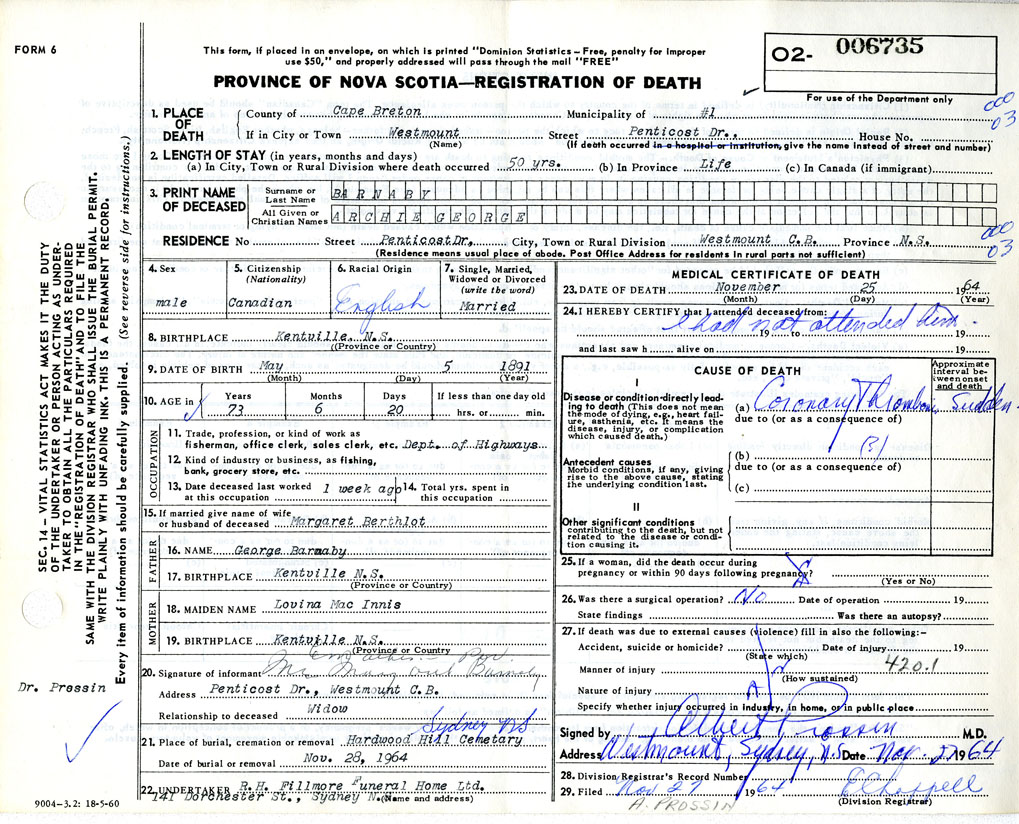 FORM 6
This form, if placed in an envelope, on which is printed "Dominion Statistics – Free, penalty for improper
use $50," and properly addressed will pass through the mail "FREE"
PROVINCE OF NOVA SCOTIA—REGISTRATION OF DEATH
02- 006735
For use of the Department only
000
03
1. PLACE OF DEATH
County of Cape Breton Municipality of #1
If in City or Town Westmount Street Penticost Dr., House No.
(Name) (If death occurred in a hospital or institution, give the name instead of street and number)
2. LENGTH OF STAY (in years, months and days)
(a) In City, Town or Rural Division where death occurred 50 yrs. (b) In Province Life (c) In Canada (if immigrant)
3. PRINT NAME OF DECEASED
Surname or Last Name BARNABY
All Given or Christian Names ARCHIE GEORGE
000
03
RESIDENCE No Street Penticost Dr, City, Town or Rural Division Westmount C.B. Province N.S.
(Residence means usual place of abode. Post Office Address for residents in rural parts not sufficient)
4. Sex
male
5. Citizenship
(Nationality)
Canadian
6. Racial Origin
English
7. Single, Married,
Widowed or Divorced
(write the word)
Married
8. BIRTHPLACE Kentville. N.S.
(Province or Country)
9. DATE OF BIRTH May 5 1891
(Month) (Day) (Year)
10. AGE in
Years Months Days If less than one day old
73 6 20 hrs. or min.
OCCUPATION
11. Trade, profession, or kind of work as
fisherman, office clerk, sales clerk, etc. Dept. of Highways
12. Kind of industry or business, as fishing,
bank, grocery store, etc.
13. Date deceased last worked
at this occupation 1 week ago
14. Total yrs. spent in
this occupation
15. If married give name of wife
or husband of deceased Margaret Berthlot
FATHER
16. NAME George Barnaby
17. BIRTHPLACE Kentville N.S.
(Province or Country)
MOTHER
18. MAIDEN NAME Lovina Mac Innis
19. BIRTHPLACE Kentville N.S.
(Province or Country)
20. Signature of informant Barnaby
Address Penticost Dr., Westmount C.B.
Relationship to deceased Widow
Sydney NS
21. Place of burial, cremation or removal Hardwood Hill Cemetary
Date of burial or removal Nov. 28, 1964
22. UNDERTAKER R.H. Fillmore Funeral Home Ltd.
141 Dorchester St., Sydney N.S. (Name and address)
MEDICAL CERTIFICATE OF DEATH
23. DATE OF DEATH November 25 1964
(Month) (Day) (Year)
24. I HEREBY CERTIFY that I attended deceased from:
I had not attended him
19 to 19
and last saw h alive on 19
CAUSE OF DEATH
Approximate
interval be-
tween onset
and death
I
Disease or condition directly lead-
ing to death (This does not mean
the mode of dying, e.g., heart fail-
ure, asthenia, etc. It means the
disease, injury, or complication
which caused death.)
(a) Coronary Thrombosis Sudden
due to (or as a consequence of)
(3)
Antecedent causes
Morbid conditions, if any, giving
rise to the above cause, stating
the underlying condition last.
(b)
due to (or as a consequence of)
(c)
II
Other significant conditions
contributing to the death, but not
related to the disease or condi-
tion causing it.
25. If a woman, did the death occur during
pregnancy or within 90 days following pregnancy?
(Yes or No)
26. Was there a surgical operation? No Date of operation 19
State findings Was there an autopsy?
27. If death was due to external causes (violence) fill in also the following:–
Accident, suicide or homicide? Date of injury 19
(State which) 420.1
Manner of injury
(How sustained)
Nature of injury
Specify whether injury occurred in industry, in home, or in public place
Signed by Albert Prossin M.D.
Address Westmount, Sydney, N.S. Date Nov. 27 1964
28. Division Registrar's Record Number
29. Filed Nov 27 1964 E Chappell
(Division Registrar)
A. PROSSIN
SEC. 14 – VITAL STATISTICS ACT MAKES IT THE DUTY
OF THE UNDERTAKER OR PERSON ACTING AS UNDER-
TAKER TO OBTAIN ALL THE PARTICULARS REQUIRED
IN THE "REGISTRATION OF DEATH" AND TO FILE THE
SAME WITH THE DIVISION REGISTRAR WHO SHALL ISSUE THE BURIAL PERMIT.
WRITE PLAINLY WITH UNFADING INK. THIS IS A PERMANENT RECORD.
Every item of information should be carefully supplied. (See reverse side for instructions.)
Dr. Prossin
9004–3.2: 18-5-60